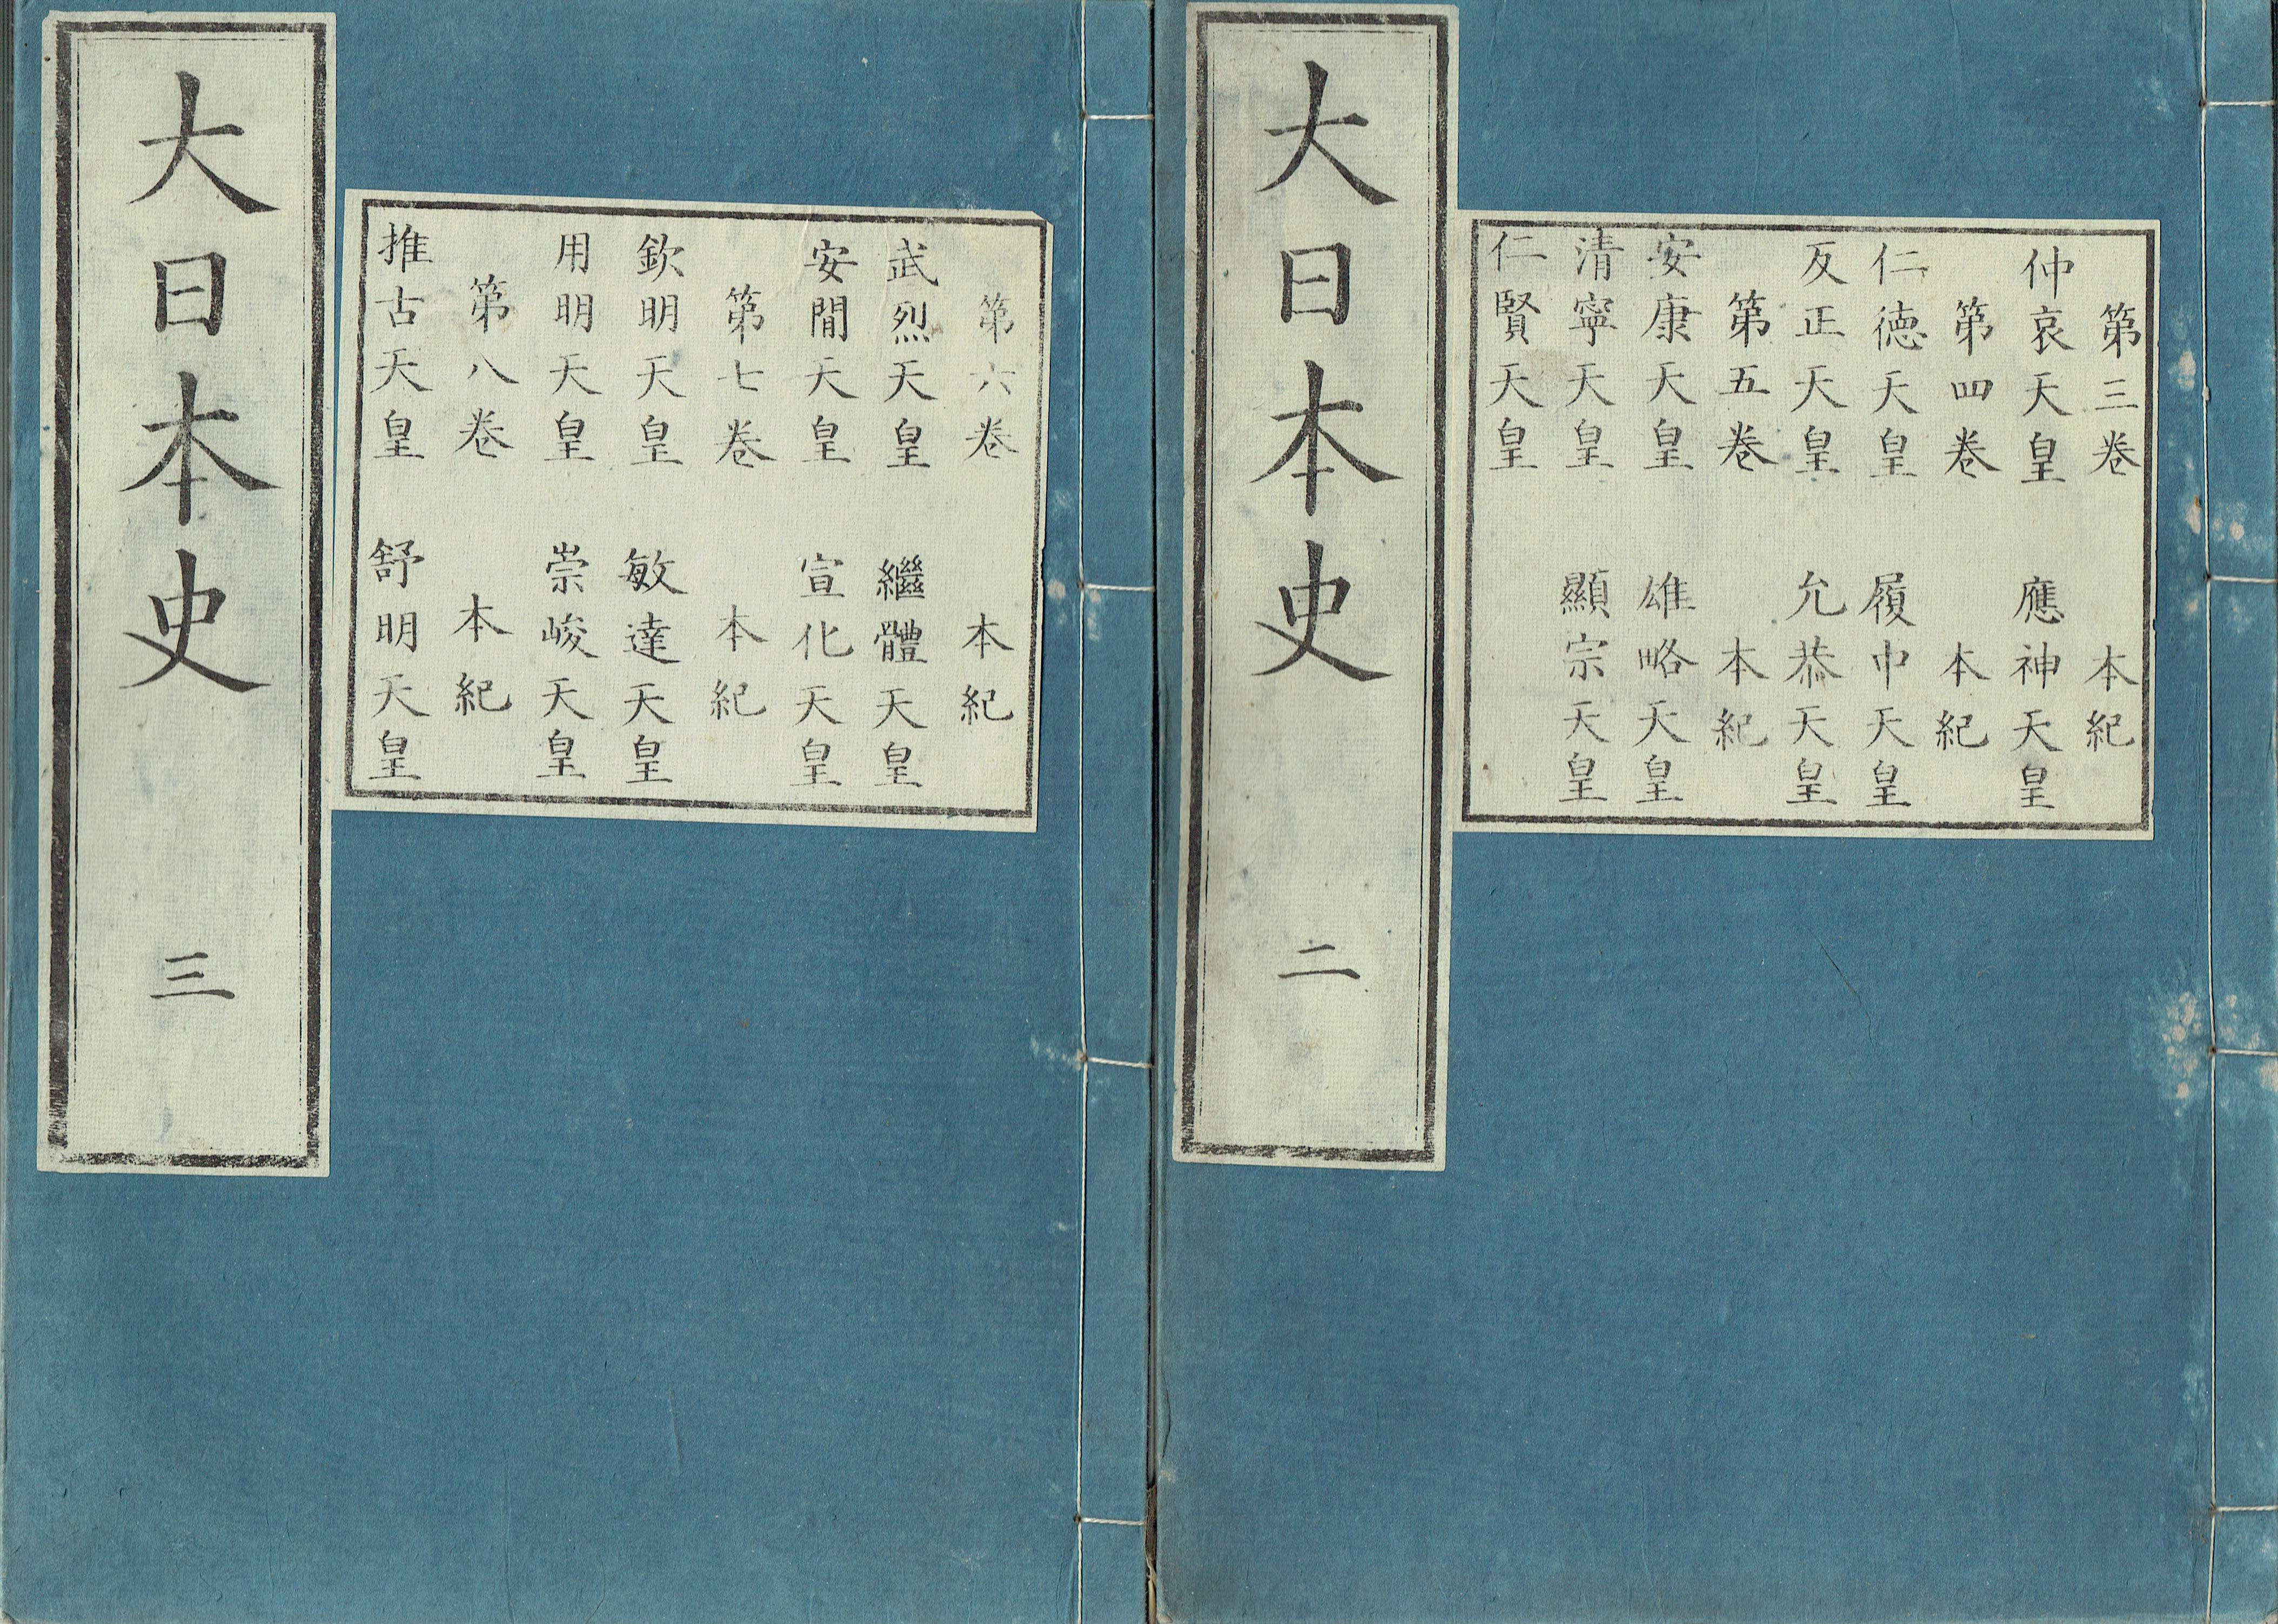 第三卷 本紀
仲哀天皇 應神天皇
第四卷 本紀
仁德天皇 履中天皇
反正天皇 允恭天皇
第五卷 本紀
安康天皇 雄略天皇
清寧天皇 顯宗天皇
仁賢天皇
大日本史 二
第六卷 本紀
武烈天皇 繼體天皇
安閒天皇 宣化天皇
第七卷 本紀
欽明天皇 敏達天皇
用明天皇 崇峻天皇
第八卷 本紀
推古天皇 舒明天皇
大日本史 三